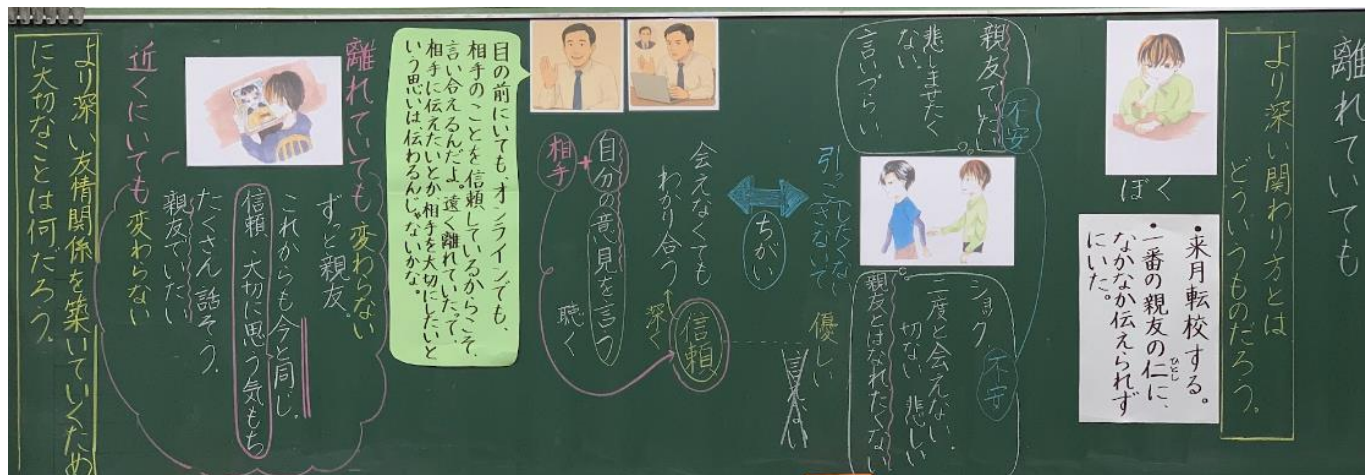 離れていても
より深い関わり方とは
どういうものだろう。
ぼく
・来月転校する。
・一番の親友の仁に、
ひとし
なかなか伝えられず
にいた。
不安
親友でいたい
悲しませたく
ない。
言いづらい
ショック
不安
二度と会えない。
切ない 悲しい
親友とはなれたくない
引っこしたくない
引っこさないで
優しい
見えない
ちがい
会えなくても
わかり合う
信頼
深く
自分の意見を言う
+
相手
聴く
目の前にいても、オンラインでも、
相手のことを信頼しているからこそ、
言い合えるんだよ。遠く離れていたって、
相手に伝えたいとか、相手を大切にしたいと
いう思いは、伝わるんじゃないかな。
離れていても変わらない
ずっと親友。
これからも今と同じ。
信頼 大切に思う気もち
たくさん話そう。
親友でいたい
近くにいても変わらない
より深い友情関係を築いていくため
に大切なことは何だろう。